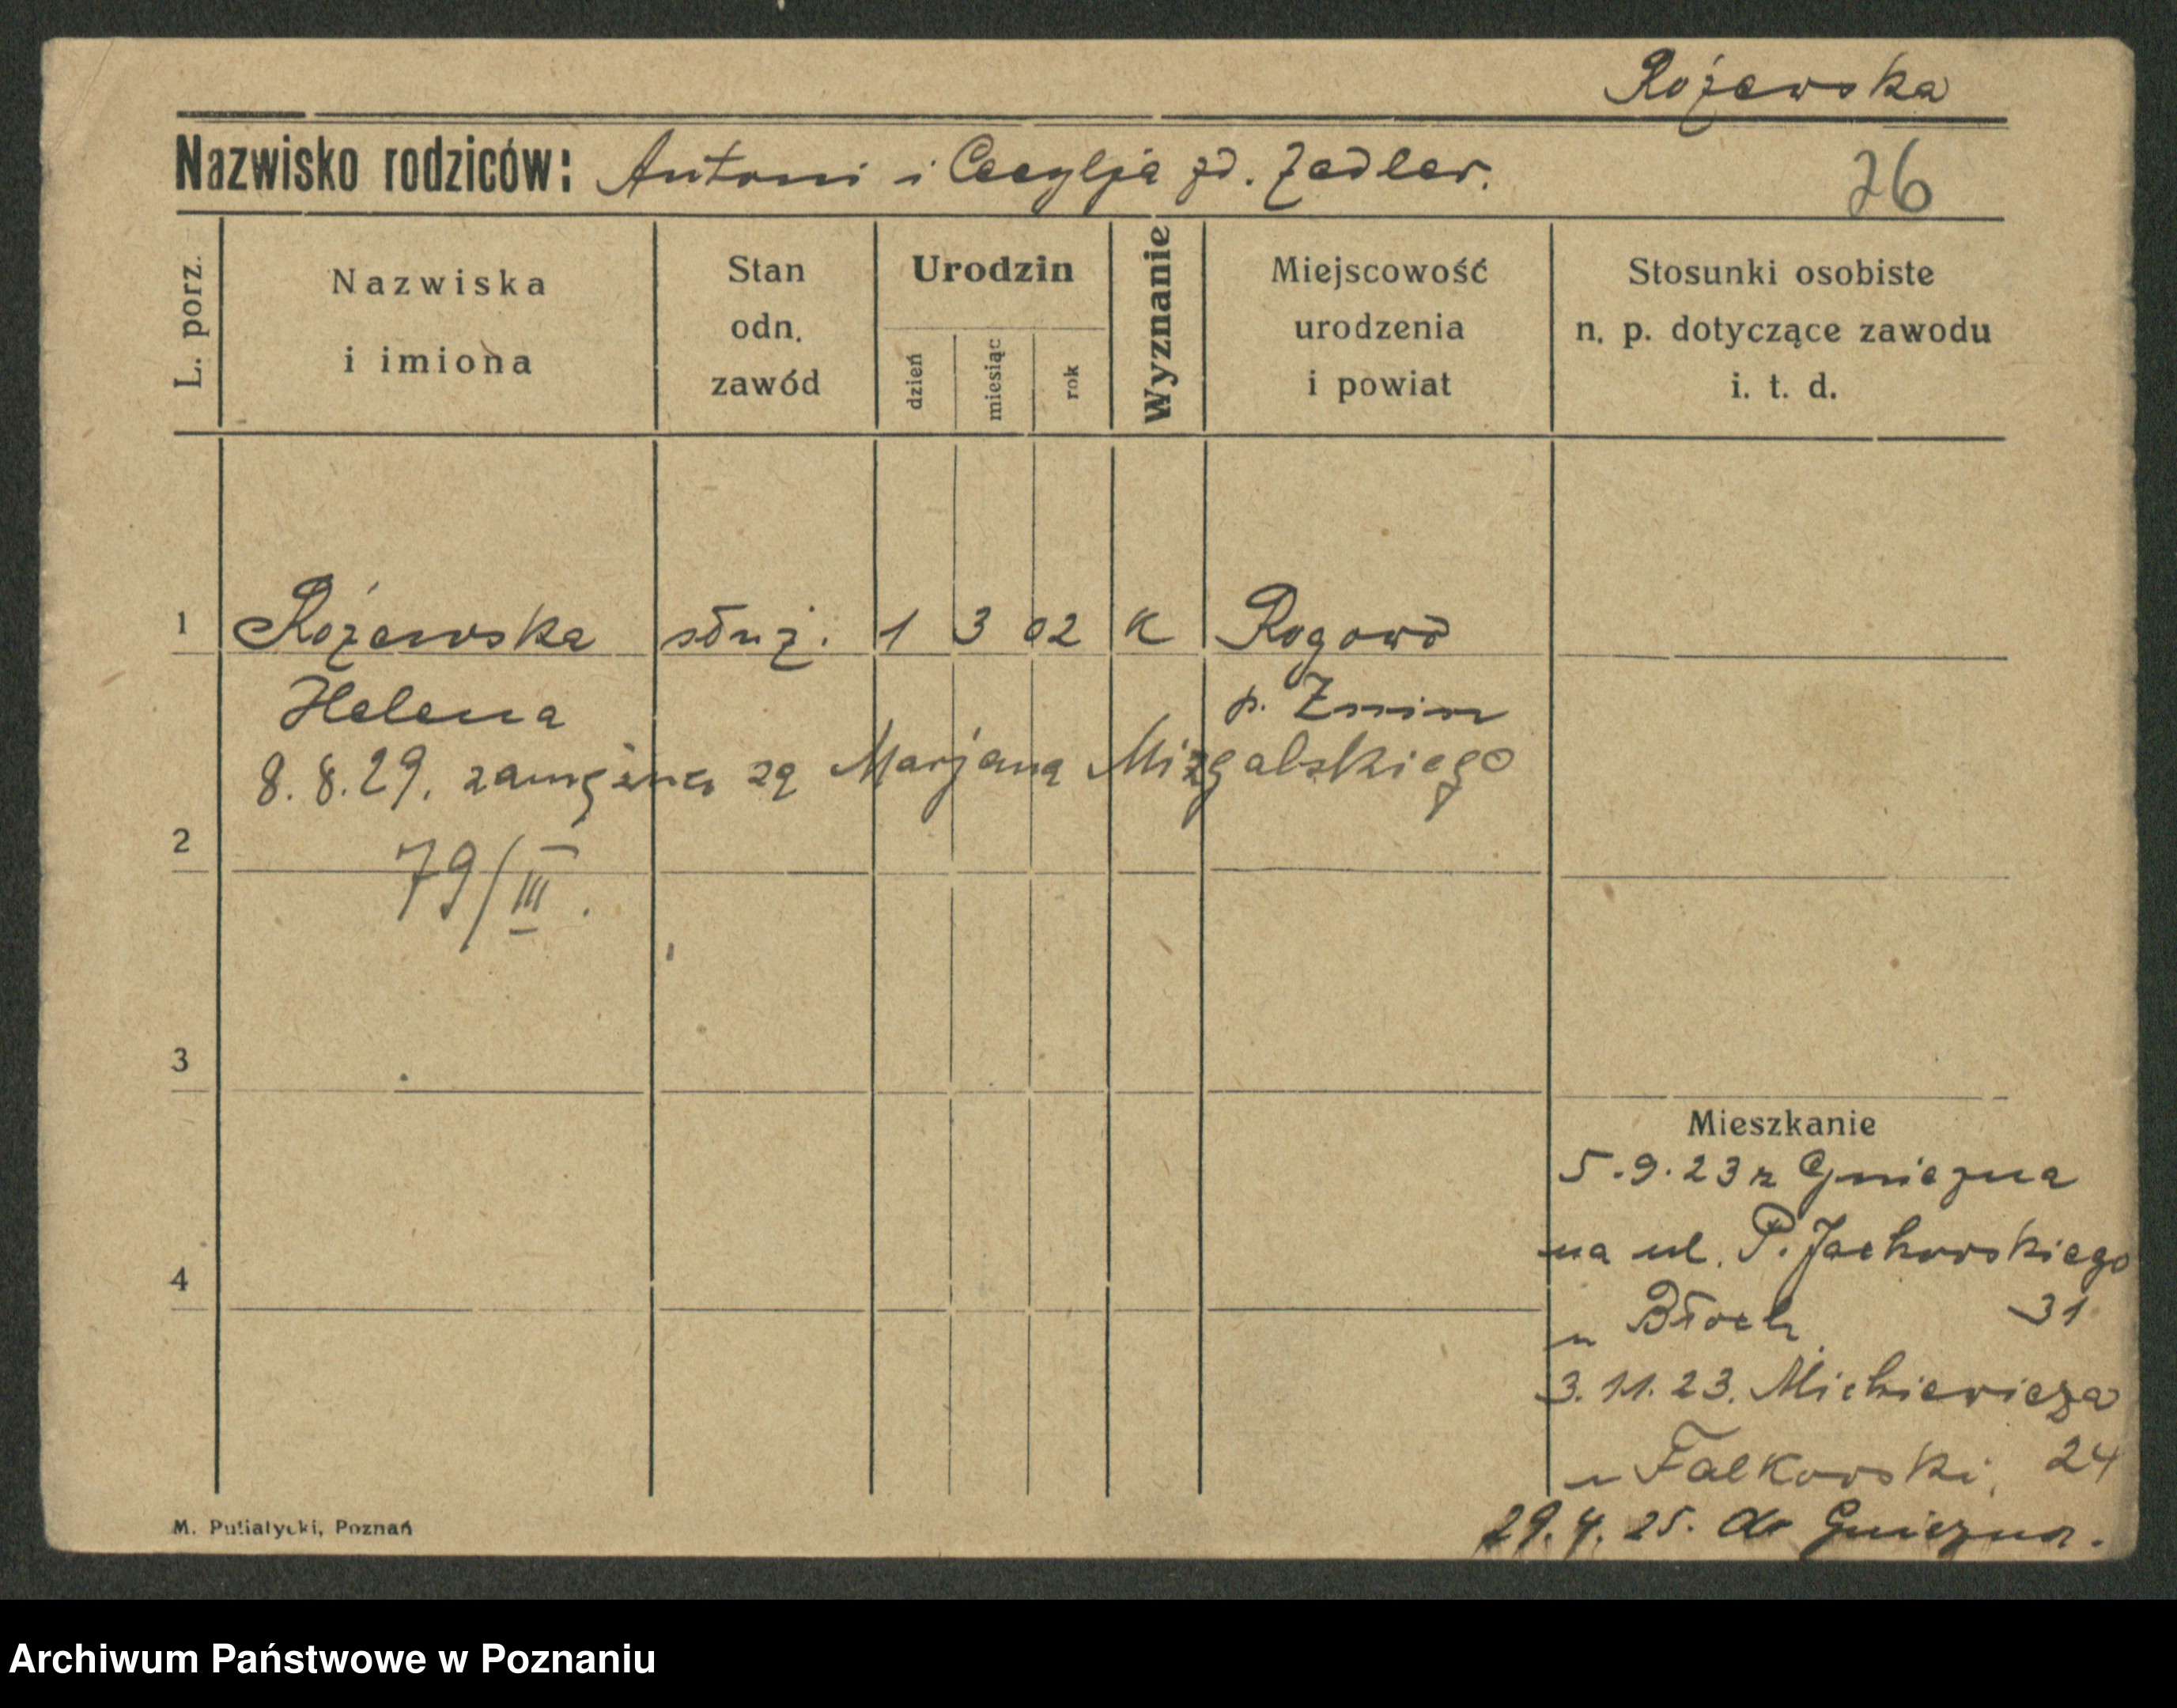 Różewska
Nazwisko rodziców: Antoni i Cecylja zd. Zedler.
76
L. porz.
Nazwiska
i imiona
Stan
odn.
zawód
Urodzin
dzień
miesiąc
rok
Wyznanie
Miejscowość
urodzenia
i powiat
Stosunki osobiste
n. p. dotyczące zawodu
i. t. d.
1 Różewska służ. 1 3 02 K Rogowo
Helena p. Żnin
8.8.29. zamężna za Marjana Mizgalskiego
2
79/III.
3
Mieszkanie
5.9.23 z Gniezna
na ul. P. Jackowskiego
31
4
u Błoch
3.11.23. Mickiewicza
24
u Falkowski,
29.4.25. do Gniezna.
M. Putiatycki, Poznań
Archiwum Państwowe w Poznaniu